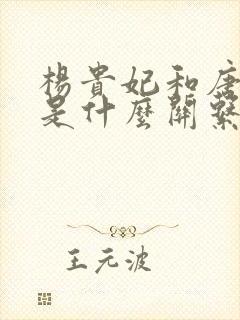 楊貴妃和唐
是什麼關繫
王元波